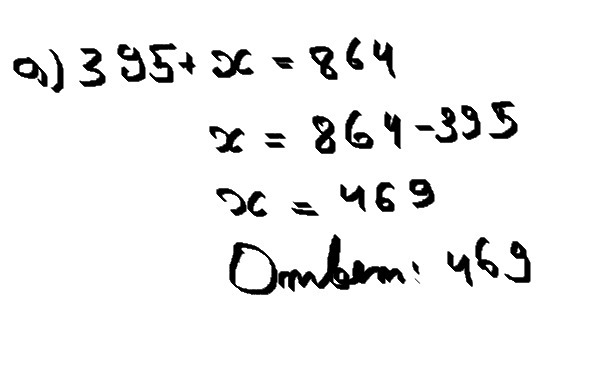 а) 395 + x = 864
x = 864 - 395
x = 469
Ответ: 469